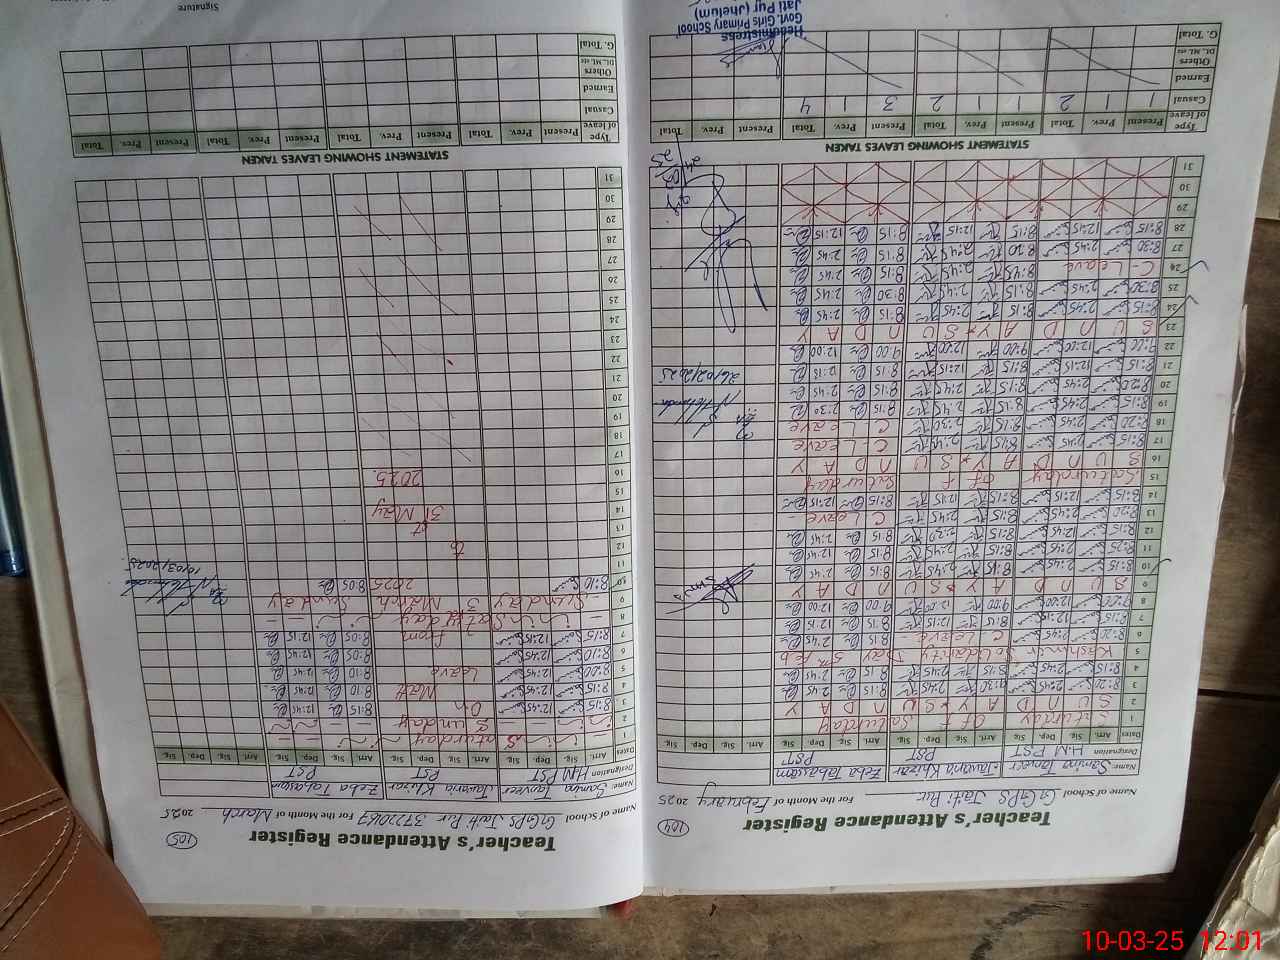 Teacher's Attendance Register
104
Name of School GGPS Jaiti Pur For the Month of February 2025
Name: Sanina Tanveer Javaria Khizar Zeba Tabassam
Designation HM PST PST PST
Dates Arri. Sig. Dep. Sig. Arri. Sig. Dep. Sig. Arri. Sig. Dep. Sig. Arri. Sig. Dep. Sig.
1 Saturday Off Saturday
2 S U N D A Y * S U N D A Y
3 8:20 2:45 9:30 2:45 8:15 2:45
4 8:15 2:45 8:15 2:45 8:15 2:45
5 Kashmir Solidarity Day 5th Feb
6 8:20 2:45 C Leave - 8:15 2:45
7 8:15 12:15 8:15 12:15 8:15 12:15
8 9:00 12:00 9:00 12:00 9:00 12:00
9 S U N D A Y * S U N D A Y
10 8:15 2:45 8:15 2:45 8:15 2:45
11 8:25 2:45 8:15 2:45 8:15 12:45
12 8:15 2:45 8:15 2:30 8:15 2:45
13 8:20 2:45 8:15 2:45 C Leave -
14 8:15 12:15 8:15 12:15 8:15 12:15
15 Saturday off Saturday
16 S U N D A Y * S U N D A Y
17 8:15 2:45 8:15 2:45 C-Leave
18 8:20 2:45 8:15 2:30 C-Leave
19 8:15 2:45 8:15 2:45 8:15 2:30
20 8:20 2:45 8:15 2:45 8:15 2:45
21 8:15 12:15 8:15 12:15 8:15 12:15
22 9:00 12:00 9:00 12:00 9:00 12:00
23 S U N D A Y * S U N D A Y
24 8:15 2:45 8:15 2:45 8:15 2:45
25 8:30 2:45 8:15 2:45 8:30 2:45
26 C-Leave 8:45 2:45 8:15 2:45
27 8:30 2:45 8:20 2:45 8:15 2:45
28 8:15 12:45 8:15 12:45 8:15 12:15
29
30
31
26/02/2025
STATEMENT SHOWING LEAVES TAKEN
Type of leave Present Prev. Total Present Prev. Total Present Prev. Total Present Prev. Total
Casual 1 1 2 1 1 2 3 1 4
Earned
Others DL, ML etc
G. Total
Headmistress
Govt. Girls Primary School
Jati Pur (Jhelum)
Teacher's Attendance Register
105
Name of School GGPS Jaiti Pur 3722067 For the Month of March 2025
Name: Sanina Tanveer Javaria Khizar Zeba Tabassam
Designation HM PST PST PST
Dates Arri. Sig. Dep. Sig. Arri. Sig. Dep. Sig. Arri. Sig. Dep. Sig. Arri. Sig. Dep. Sig.
1 Saturday
2 Sunday
3 8:15 12:45 On 8:15 12:45
4 8:15 12:45 Mat. 8:10 12:45
5 8:20 12:45 Leave 8:10 12:45
6 8:10 12:45 8:05 12:45
7 8:15 12:15 from 8:05 12:15
8 Saturday
9 Sunday 3 March Sunday
10 8:10 2025 8:05
11
12 to
13 31st
14 May
15
16 2025.
17
18
19
20
21
22
23
24
25
26
27
28
29
30
31
10/03/2025
STATEMENT SHOWING LEAVES TAKEN
Type of leave Present Prev. Total Present Prev. Total Present Prev. Total Present Prev. Total
Casual
Earned
Others DL, ML etc
G. Total
Signature
10-03-25 12:01